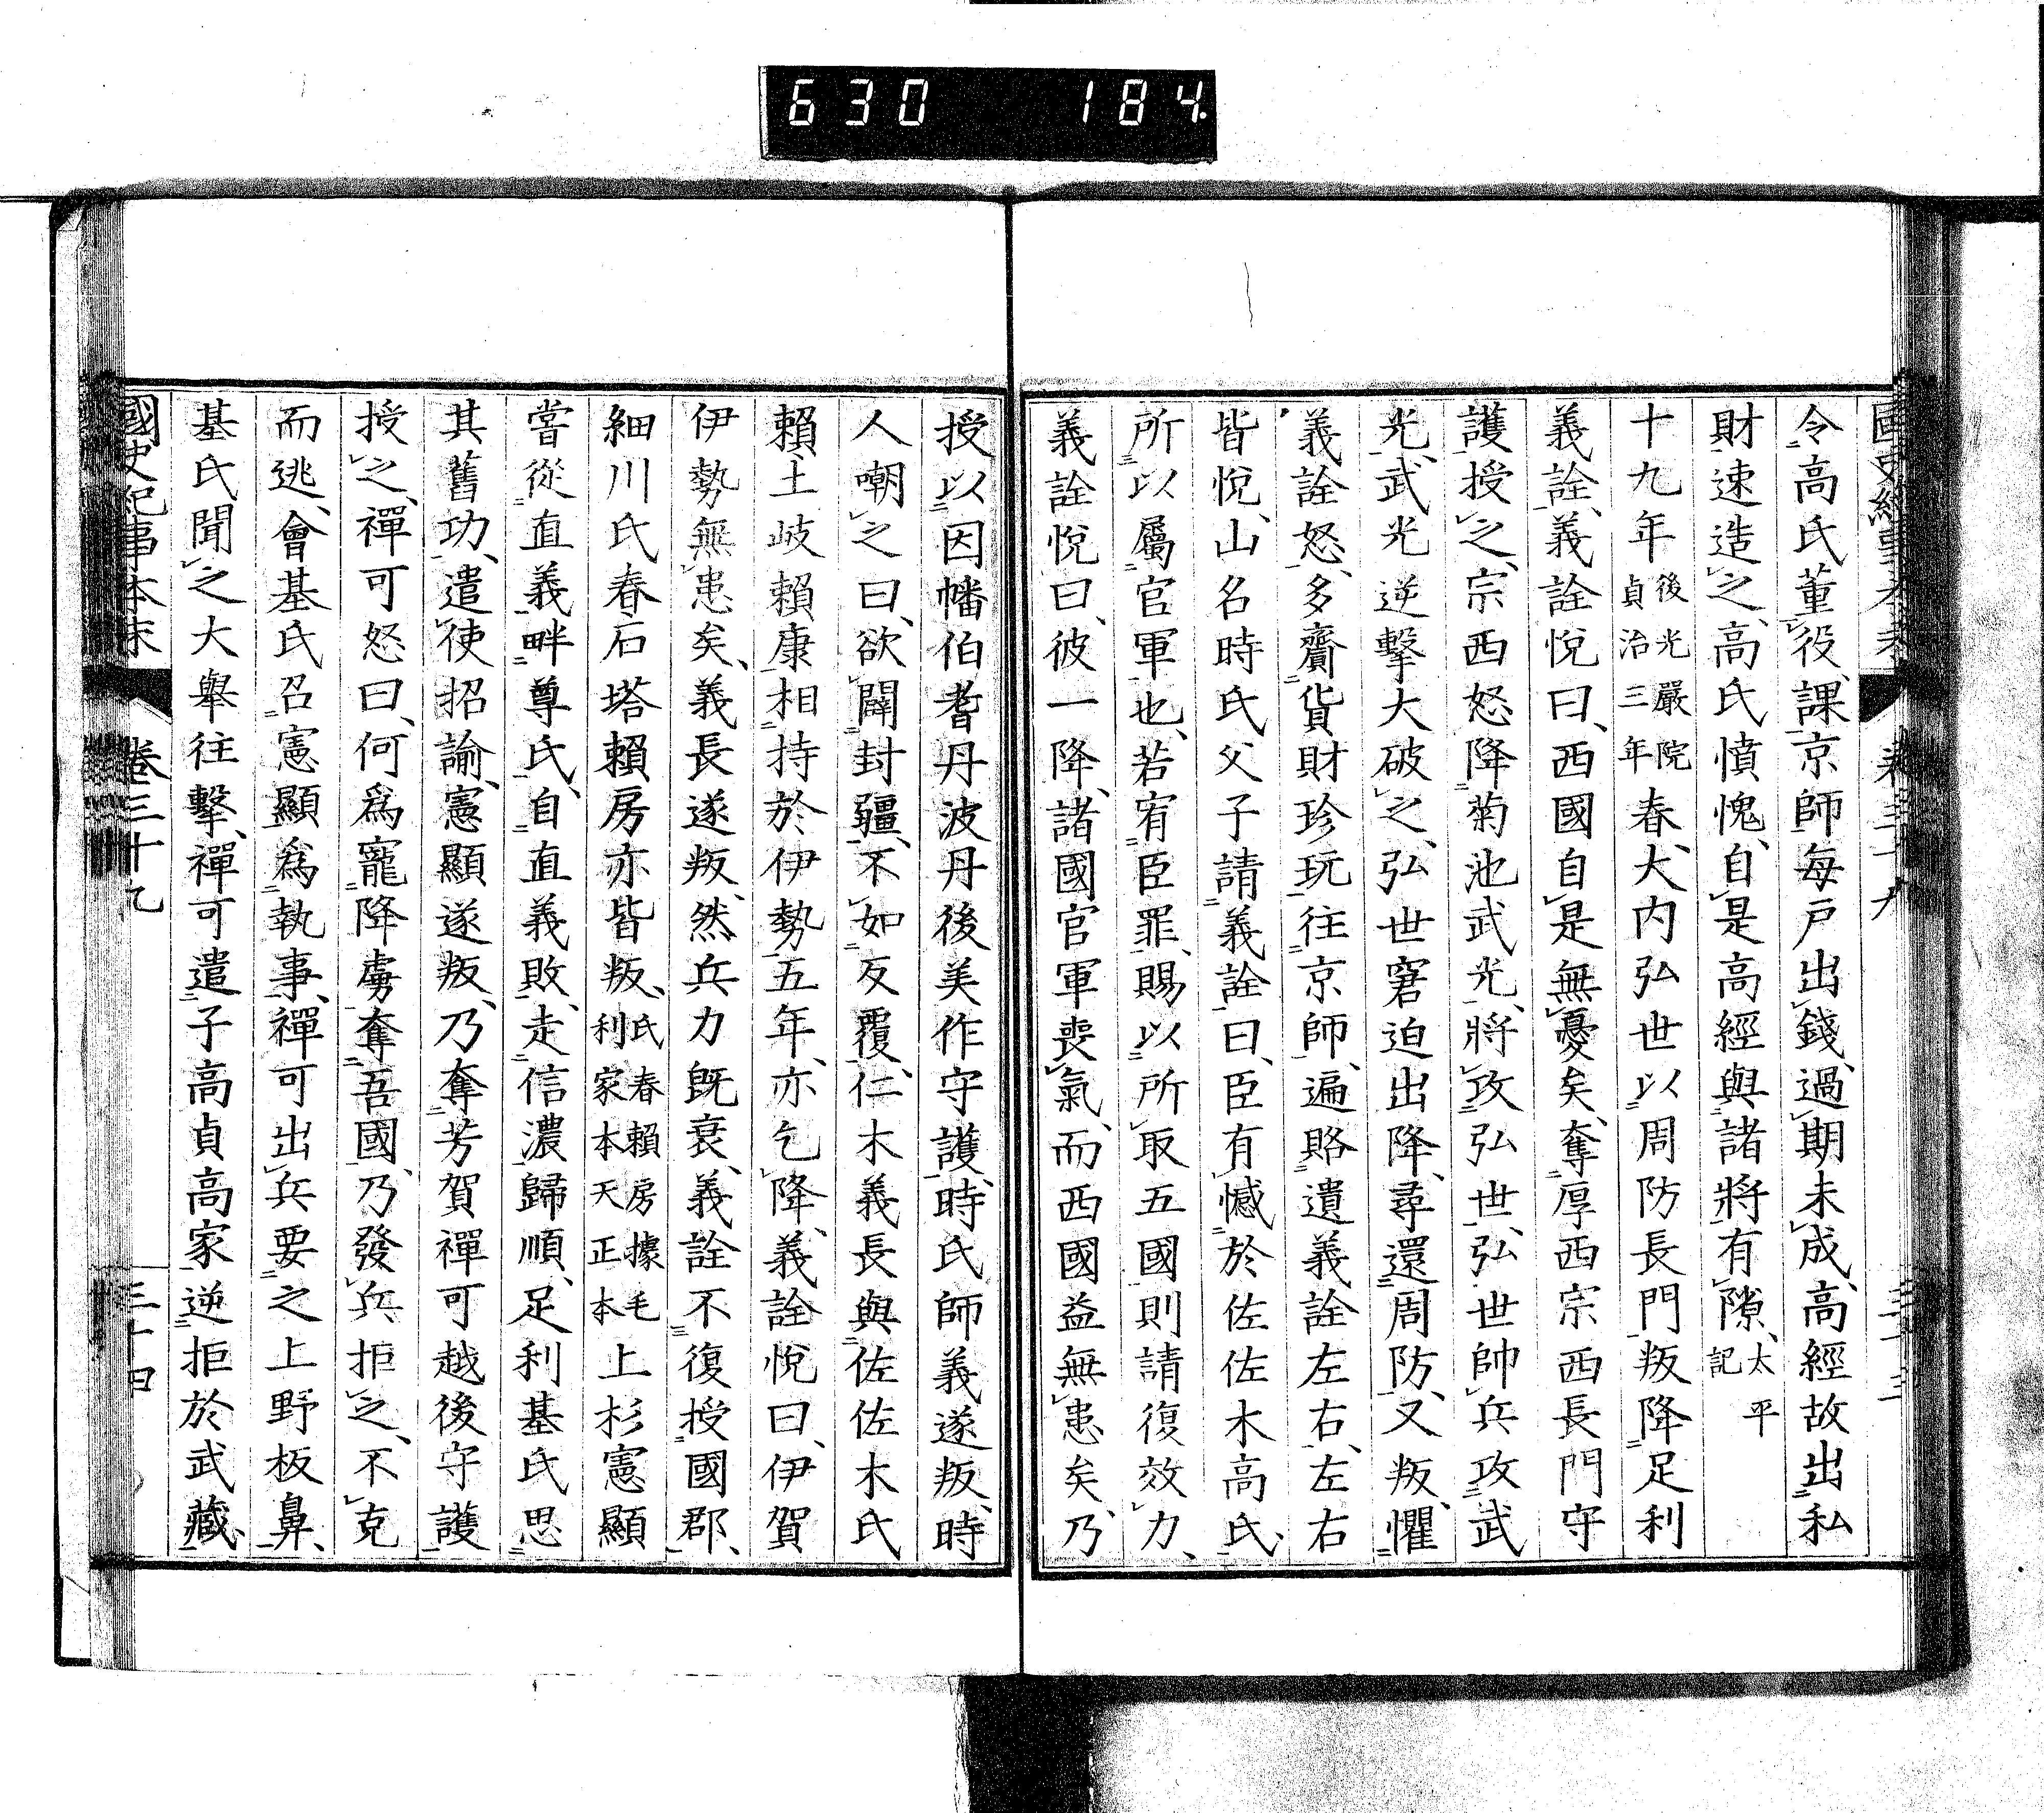 630 184
令高氏董役、課京師每戶出錢、過期未成、高經故出私
財速造之、高氏憤愧、自是高經與諸將有隙、太平記
十九年後光嚴院貞治三年春、大内弘世以周防長門叛降足利
義詮、義詮悅曰、西國自是無憂矣、奪厚西宗西長門守
護授之、宗西怒降菊池武光、將攻弘世、弘世帥兵攻武
光、武光逆擊大破之、弘世窘迫出降、尋還周防、又叛、懼
義詮怒、多齎貨財珍玩往京師、遍賂遺義詮左右、左右
皆悅、山名時氏父子請義詮曰、臣有憾於佐佐木高氏、
所以屬官軍也、若宥臣罪、賜以所取五國則請復效力、
義詮悅曰、彼一降、諸國官軍喪氣、而西國益無患矣、乃
授以因幡伯耆丹波丹後美作守護、時氏師義遂叛、時
人嘲之曰、欲闢封疆、不如反覆、仁木義長與佐佐木氏
賴、土岐賴康相持於伊勢五年、亦乞降、義詮悅曰、伊賀
伊勢無患矣、義長遂叛、然兵力既衰、義詮不復授國郡、
細川氏春石塔賴房亦皆叛、氏春賴房據毛利家本天正本上杉憲顯
嘗從直義畔尊氏、自直義敗、走信濃歸順、足利基氏思
其舊功、遣使招諭、憲顯遂叛、乃奪芳賀禪可越後守護
授之、禪可怒曰、何爲寵降虜奪吾國、乃發兵拒之、不克
而逃、會基氏召憲顯爲執事、禪可出兵要之上野板鼻、
基氏聞之大舉往擊、禪可遣子高貞高家逆拒於武藏、
國史紀事本末 卷三十九 三十四